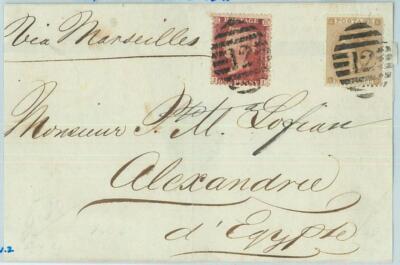 Via Marseilles
POSTAGE
POSTAGE
12
12
Monsieur P. M. Sofian
Alexandrie
d'Egypte